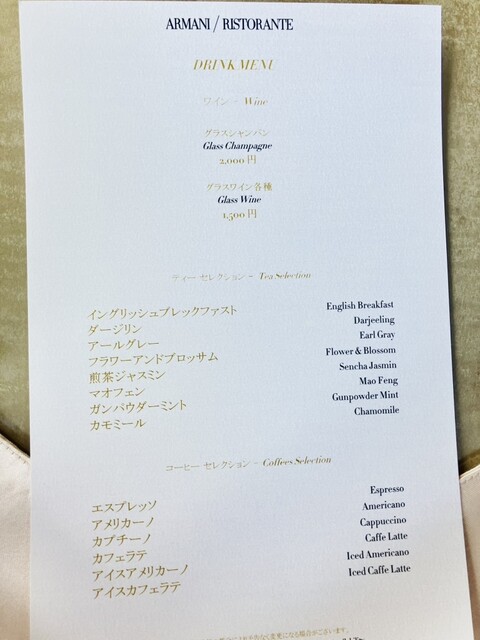 ARMANI / RISTORANTE
DRINK MENU
ワイン - Wine
グラスシャンパン
Glass Champagne
2,000 円
グラスワイン各種
Glass Wine
1,500 円
ティー セレクション - Tea Selection
イングリッシュブレックファスト English Breakfast
ダージリン Darjeeling
アールグレー Earl Gray
フラワーアンドブロッサム Flower & Blossom
煎茶ジャスミン Sencha Jasmin
マオフェン Mao Feng
ガンパウダーミント Gunpowder Mint
カモミール Chamomile
コーヒー セレクション - Coffees Selection
エスプレッソ Espresso
アメリカーノ Americano
カプチーノ Cappuccino
カフェラテ Caffe Latte
アイスアメリカーノ Iced Americano
アイスカフェラテ Iced Caffe Latte
なく変更になる場合がございます。